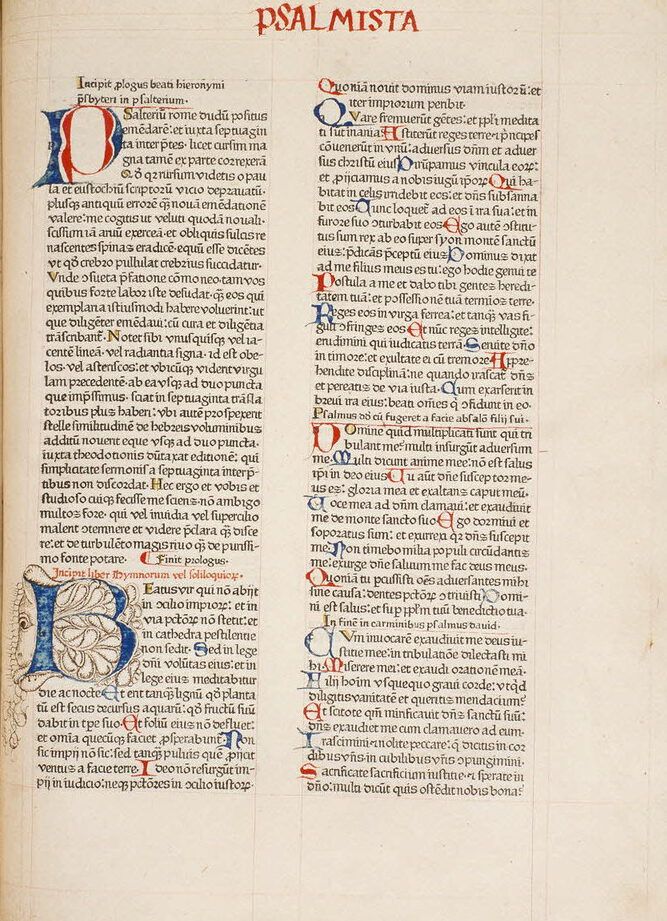 PSALMISTA
Incipit ꝓlogus beati hieronymi
p̄sbyteri in psalterium·
PSalteriū rome dudū positus
emēdarē: et iuxta septuagin
ta interp̄tes· licet cursim ma
gna tamē ex parte correxerā
Qđ qꝛ rursum videtis o pau
la et eustochiū scriptoꝝ vicio depꝛauatū·
plusqꝫ antiquū errorē qꝫ nouā emēdationē
valere: me cogitis ut veluti quodā nouali·
scissum iā aruū exerceā· et obliquis sulcis re
nascentes spinas eradicē· equū esse dicētes
ut qđ crebro pullulat crebrius succidatur·
Vnde ↄsueta p̄fatione cōmoneo· tam vos
quibus forte labor iste desudat· qꝫ eos qui
exemplaria istiusmodi habere voluerint: ut
que diligēter emēdaui: cū cura et diligētia
trāscribant· Notet sibi vnusquisqꝫ vel ia-
centē lineā· vel radiantia signa· id est obe-
los· vel asteriscos: et vbicūqꝫ viderit virgu
lam precedentē· ab ea vsqꝫ ad duo puncta
que impssimus· sciat in septuaginta trāsla
toribus plus haberi: vbi autē prospexerit
stelle similitudinē de hebreis voluminibus
additū nouerit eque vsqꝫ ad duo puncta·
iuxta theodotionis dūtaxat editionē: qui
simplicitate sermonis a septuaginta interp̄-
tibus non discordat· Hec ergo et vobis et
studioso cuiqꝫ fecisse me sciens· nō ambigo
multos fore· qui vel inuidia vel supercilio
malent ↄtemnere et videre p̄clara qꝫ disce
re: et de turbulēto magis riuo qꝫ de purissi-
mo fonte potare· Finit prologus·
Incipit liber hymnorum vel soliloquioꝝ·
BEatus vir qui nō abijt
in ↄcilio impioꝝ: et in
via pctōꝝ nō stetit: et
in cathedra pestilentie
non sedit· Sed in lege
dn̄i volūtas eius: et in
lege eius meditabitur
die ac nocte· Et erit tanqꝫ lignū qđ planta
tū est secus decursus aquaꝝ: qđ fructū suū
dabit in tpe suo· Et foliū eius nō defluet:
et omīa quecūqꝫ faciet ꝓsperabunt̃· Non
sic impij nō sic: sed tanqꝫ puluis quē ꝓijcit
ventus a facie terre· Ideo nō resurgūt im-
pij in iudicio: neqꝫ pctōres in ↄcilio iustoꝝ·
Quoniā nouit dominus viam iustoꝝ: et
iter impiorum peribit·
QVare fremuerūt gētes: et ppl'i medita
ti sūt inania· Astiterūt reges terre· et p̄ncipes
cōuenerūt in vnū: aduersus dn̄m et aduer
sus christū eius· Dirūpamus vincula eoꝝ:
et ꝓijciamus a nobis iugū ip̄oꝝ· Qui ha-
bitat in celis irridebit eos: et dn̄s subsanna
bit eos· Tunc loquet̃ ad eos ī ira sua: et in
furore suo ↄturbabit eos· Ego autē ↄstitu-
tus sum rex ab eo super syon montē sanctū
eius: p̄dicās p̄ceptū eius· Dominus dixit
ad me filius meus es tu: ego hodie genui te
Postula a me et dabo tibi gentes heredi-
tatem tuā: et possessionē tuā termīos terre·
Reges eos in virga ferrea: et tanqꝫ vas fi-
guli ↄfringes eos· Et nūc reges intelligite:
erudimini qui iudicatis terrā· Seruite dn̄o
in timore: et exultate ei cū tremore· Appre-
hendite disciplinā: ne quando irascat̃ dn̄s
et pereatis de via iusta· Cum exarserit in
breui ira eius: beati om̄es q̇ ↄfidunt in eo·
Psalmus dd cū fugeret a facie absalō filij sui·
DOmine quid multiplicati sunt qui tri
bulant me: multi insurgūt aduersum
me· Multi dicunt anime mee: nō est salus
ip̄i in deo eius· Tu aūt dn̄e susceptor me-
us es: gloria mea et exaltans caput meū·
Voce mea ad dn̄m clamaui: et exaudiuit
me de monte sancto suo· Ego dormiui et
soporatus sum: et exurrexi qꝛ dn̄s suscepit
me· Non timebo milia populi circūdantis
me: exurge dn̄e saluum me fac deus meus·
Quoniā tu pcussisti om̄es aduersantes mihi
sine causa: dentes pctōꝝ ↄtriuisti· Domi-
ni est salus: et sup ppl'm tuū benedictio tua·
In finē in carminibus psalmus dauid·
CVm inuocarē exaudiuit me deus iu-
sticie mee: in tribulatiōe dilectasti mi
hi· Miserere mei: et exaudi orationē meā·
Filij hoīm vsquequo graui corde: vt qđ
diligitis vanitatē et queritis mendacium?
Et scitote qm̄ mirificauit dn̄s sanctū suū:
dn̄s exaudiet me cum clamauero ad eum·
Irascimini et nolite peccare: q̄ dicitis in cor
dibus vr̄is· in cubilibus vr̄is ↄpungimini·
Sacrificate sacrificium iusticie· et sperate in
dn̄o: multi dicūt quis ostēdit nobis bona?